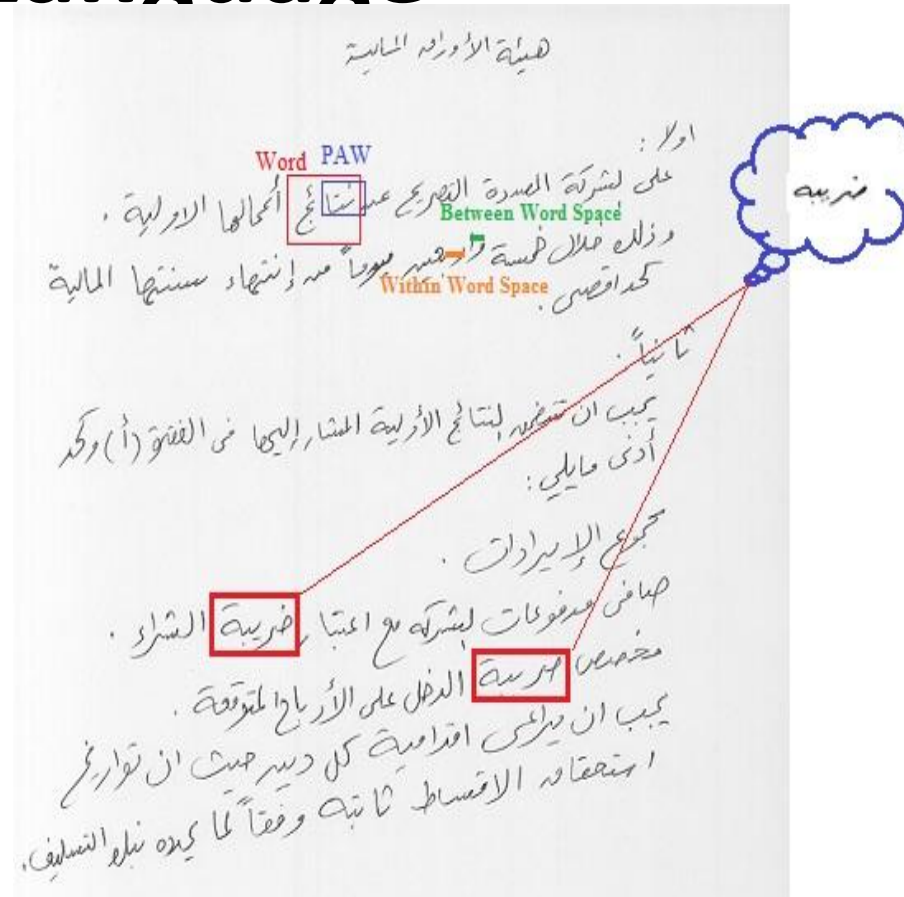 هيئة الأوراق المالية
اولا :
Word PAW
على الشركة المصدرة التصريح عن نتائج أعمالها الاولية .
Between Word Space
وذلك خلال خمسة واربعين يوماً من إنتهاء سنتها المالية
Within Word Space
كحد اقصى .
ضريبه
ثانياً :
يجب ان تتضمن النتائج الأولية المشار إليها في الفقرة (أ) وكحد
أدنى مايلي :
مجموع الإيرادات .
صافي مدفوعات الشركه مع اعتبار ضريبة الشراء .
مخصص ضريبة الدخل على الأرباح المتوقعة .
يجب ان يراعى اقدامية كل دين حيث ان تواريخ
استحقاق الاقساط ثابته وفقاً لما يحدده التسليف.